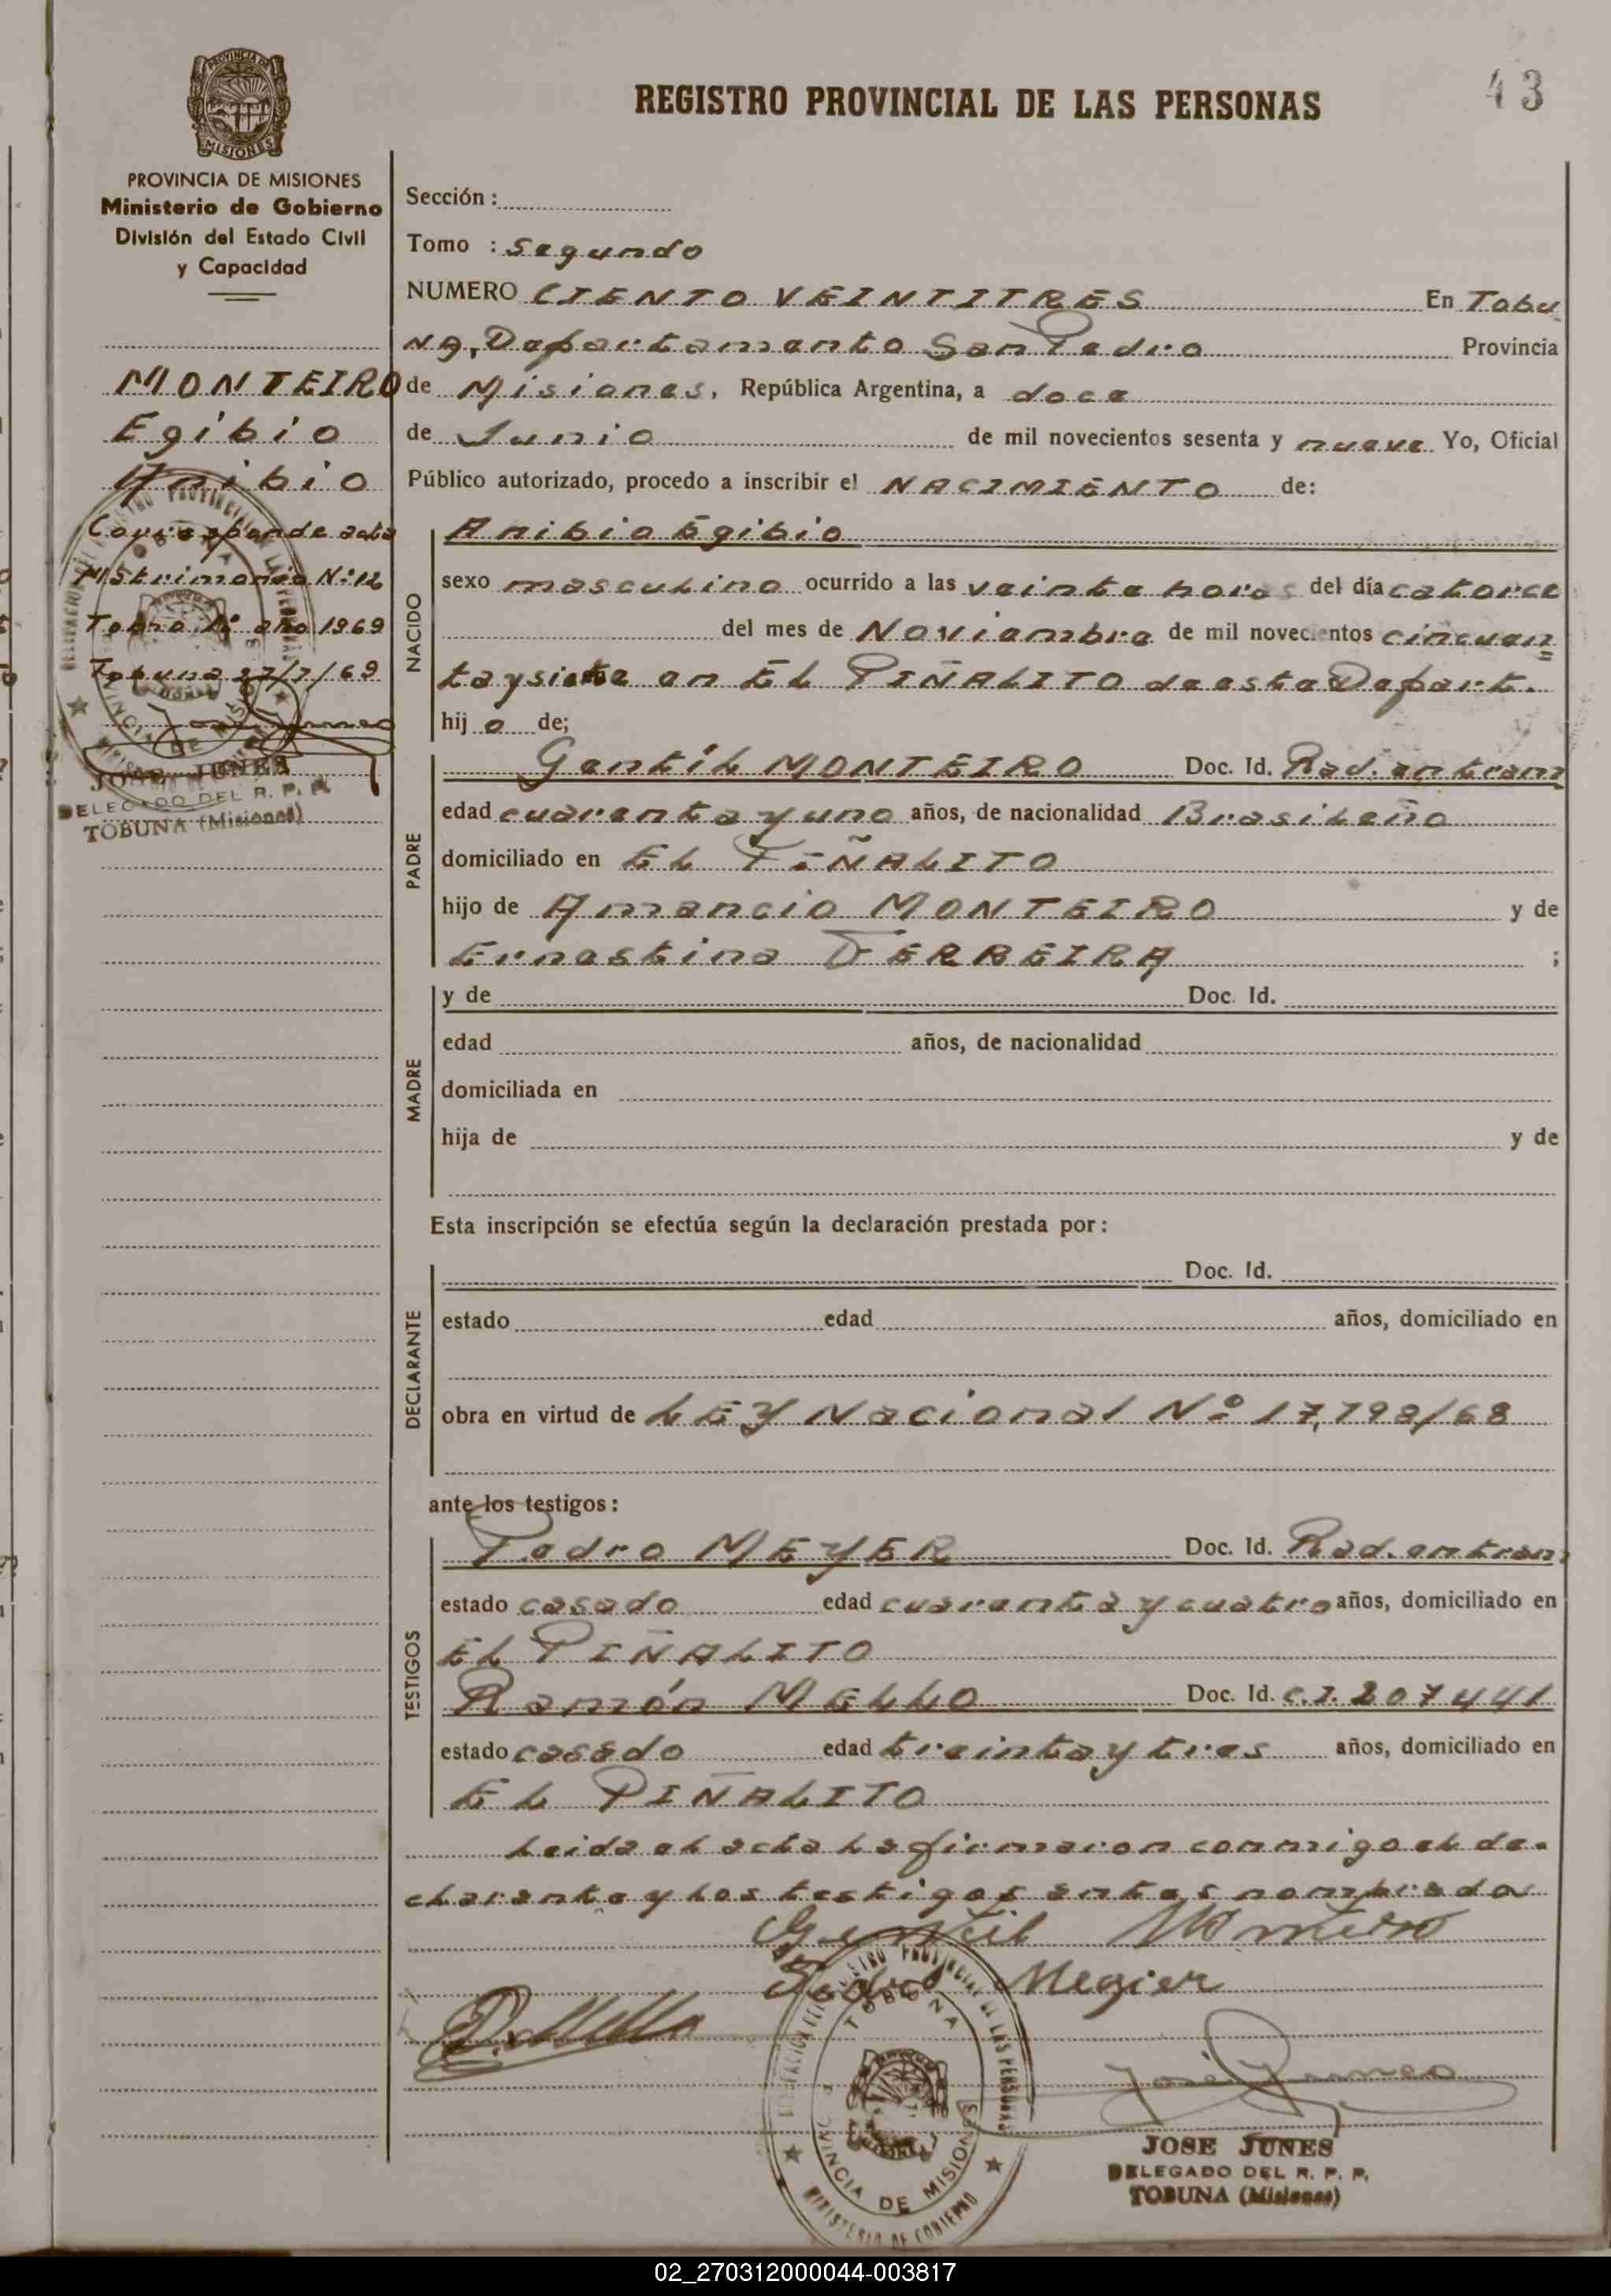 43
REGISTRO PROVINCIAL DE LAS PERSONAS
PROVINCIA DE MISIONES
Ministerio de Gobierno
División del Estado Civil
y Capacidad
MONTEIRO
Egibio
Anibio
Corresponde acta
Matrimonio N:12
Tomo 1º año 1969
Tobuna 27/7/69
JOSE JUNES
DELEGADO DEL R. P. P.
TOBUNA (Misiones)
Sección :
Tomo : Segundo
NUMERO CIENTO VEINTITRES En Tobu
na, Departamento San Pedro Provincia
de Misiones, República Argentina, a doce
de Junio de mil novecientos sesenta y nueve Yo, Oficial
Público autorizado, procedo a inscribir el NACIMIENTO de:
NACIDO
Anibio Egibio
sexo masculino ocurrido a las veinte horas del día catorce
del mes de Noviembre de mil novecientos cincuen
taysiete en EL PIÑALITO de esta Depart.
hijo de;
PADRE
Gentil MONTEIRO Doc. Id. Rad. en tram
edad cuarenta y uno años, de nacionalidad Brasileño
domiciliado en EL PIÑALITO
hijo de Amancio MONTEIRO y de
Ernestina FERREIRA ;
MADRE
y de Doc. Id.
edad años, de nacionalidad
domiciliada en
hija de y de
Esta inscripción se efectúa según la declaración prestada por :
DECLARANTE
Doc. Id.
estado edad años, domiciliado en
obra en virtud de LEY Nacional Nº 17,798/68
ante los testigos :
TESTIGOS
Pedro MEYER Doc. Id. Rad. en tram
estado casado edad cuarenta y cuatro años, domiciliado en
EL PIÑALITO
Ramón MELLO Doc. Id. C.I. 207441
estado casado edad treinta y tres años, domiciliado en
EL PIÑALITO
Leida el acta la firmaron conmigo el de-
clarante y los testigos antes nombrados
Gentil Monteiro
Pedro Megier
R. Mello
TOBUNA
PROVINCIA DE MISIONES
MINISTERIO DE GOBIERNO
José Junes
JOSE JUNES
DELEGADO DEL R. P. P.
TOBUNA (Misiones)
02_270312000044-003817